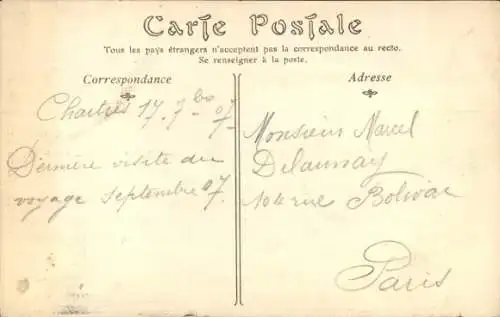 Carte Postale
Tous les pays étrangers n'acceptent pas la correspondance au recto.
Se renseigner à la poste.
Correspondance
Adresse
Chartres 17. 7bre 07
Dernière visite du
voyage Septembre 07.
Monsieur Marcel
Delaunay
104 rue Bolivar
Paris